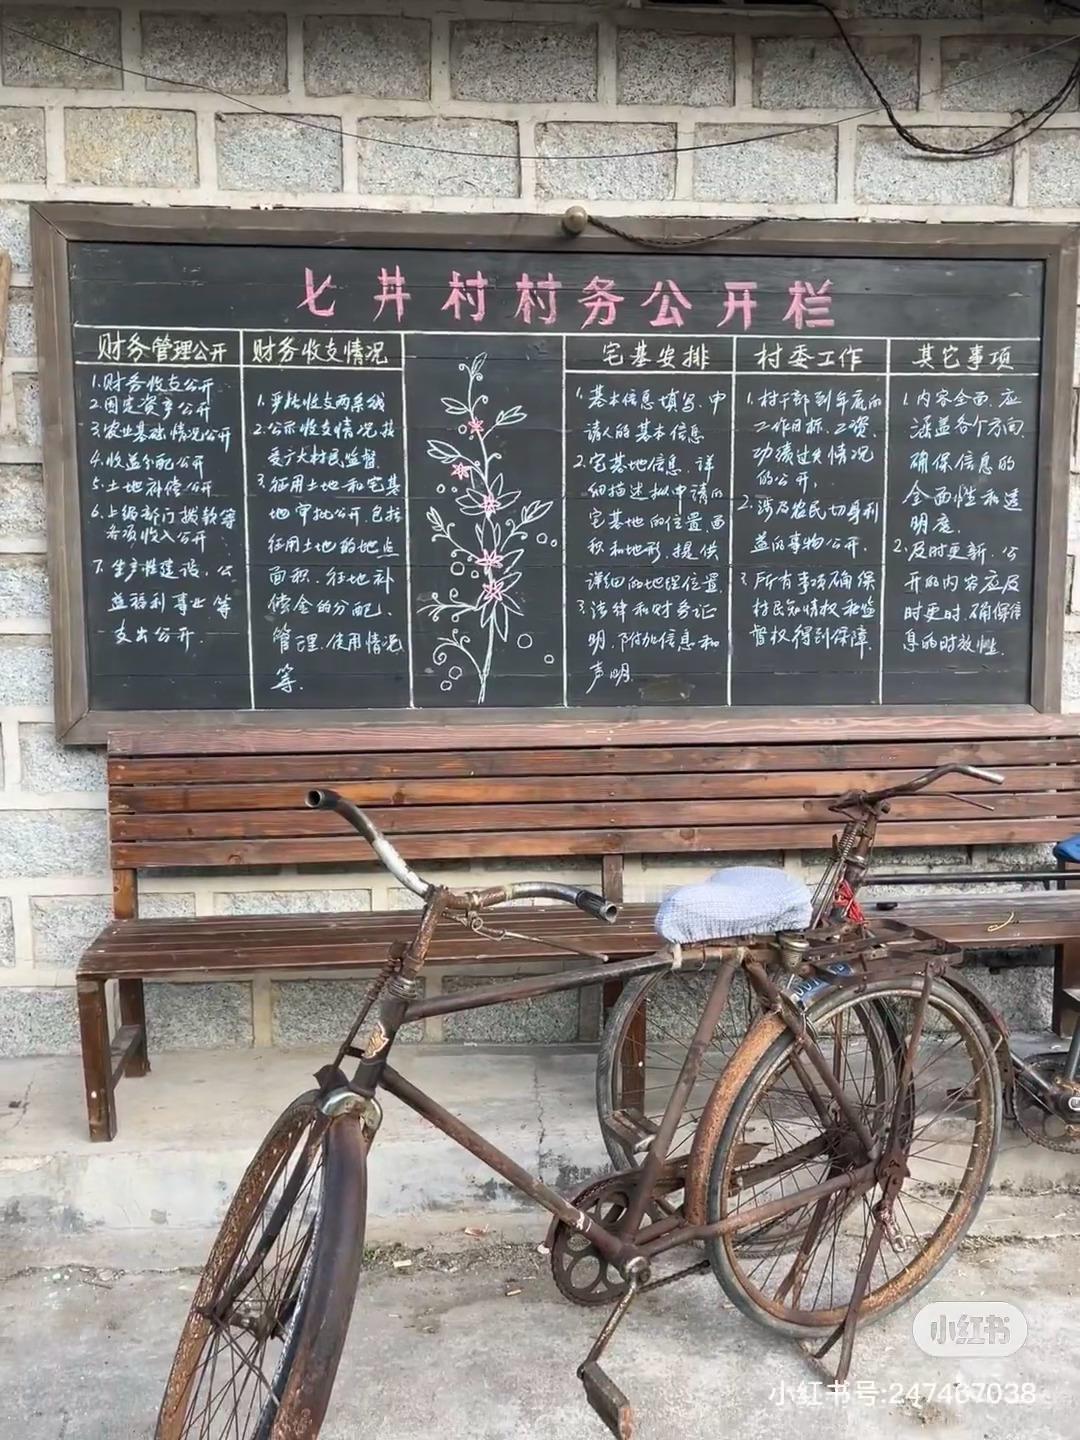 七井村村务公开栏
财务管理公开
1.财务收支公开
2.固定资产公开
3.农业基础情况公开
4.收益分配公开
5.土地补偿公开
6.上级部门拨款等
各项收入公开
7.生产性建设、公
益福利事业等
支出公开.
财务收支情况
1.严格收支两条线
2.公示收支情况接
受广大村民监督.
3.征用土地和宅基
地审批公开.包括
征用土地的地点
面积、征地补
偿金的分配、
管理.使用情况
等.
宅基安排
1.基本信息填写.申
请人的基本信息
2.宅基地信息.详
细描述拟申请的
宅基地的位置.面
积和地形.提供
详细的地理位置.
3.法律和财务证
明.附加信息和
声明.
村委工作
1.村干部到年底的
工作目标、工资、
功绩过失情况
的公开,
2.涉及农民切身利
益的事物公开.
3.所有事项确保
村民知情权和监
督权得到保障.
其它事项
1.内容全面.应
涵盖各个方面.
确保信息的
全面性和透
明度.
2.及时更新.公
开的内容应及
时更时.确保信
息的时效性.
小红书
小红书号:247467038